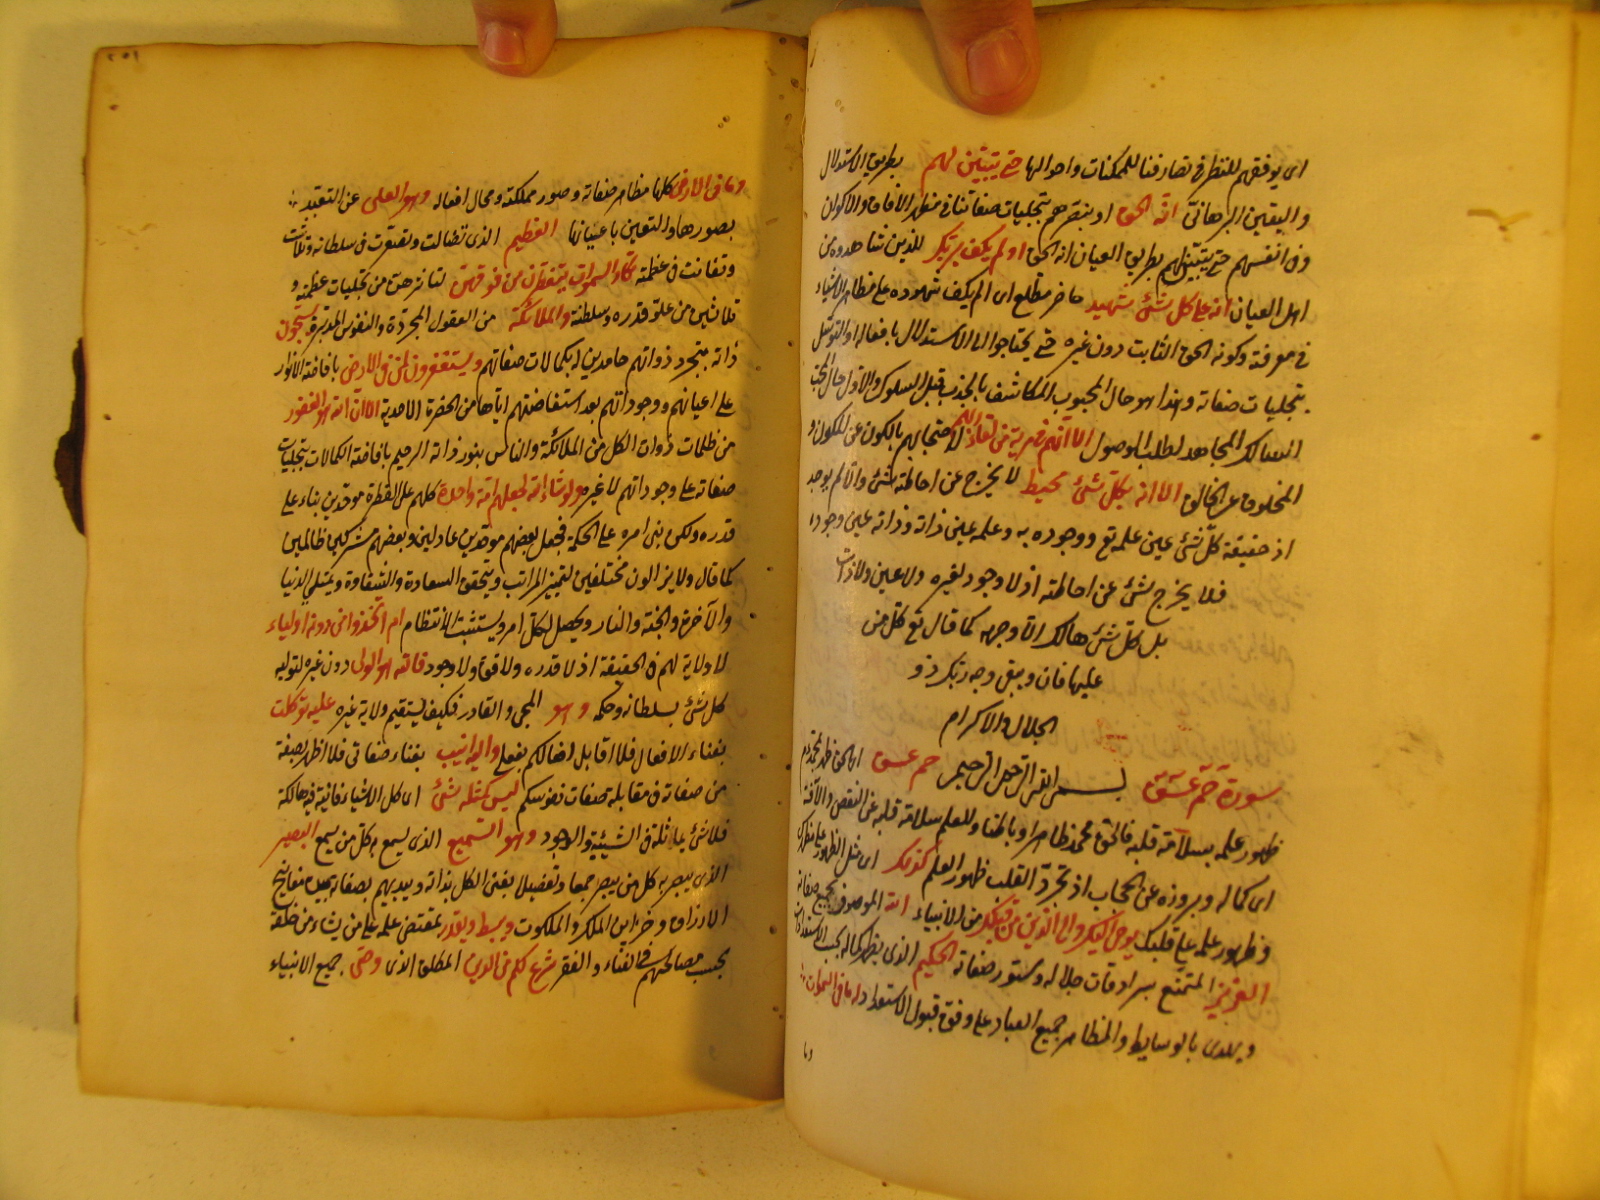 اى يوفقهم للنظر فى تصارفنا للممكنات واحوالها حتى يتبين لهم بطريق الاستدلال
واليقين البرهانى انه الحق او بتجليات صفاتنا فى مظهر الافاق والاكوان
وفى انفسهم حتى يتبين لهم بطريق العيان انه الحق اولم يكف بربك للذين شاهدوه من
اهل العيان انه على كل شئ شهيد حاضر مطلع اى الم يكف شهوده على مظاهر الاشياء
فى معرفته وكونه الحق الثابت دون غيره حتى يحتاجوا الى الاستدلال بافعاله او التوسل
بتجليات صفاته وهذا هو حال المحبوب المكاشف بالجذب قبل السلوك والاول حال المحب
السالك المجاهد لطلب الوصول الا انهم فى مرية من لقاء ربهم لاحتجابهم بالكون عن المكون و
المخلوق عن الخالق الا انه بكل شئ محيط لا يخرج عن احاطته شئ والا لم يوجد
اذ حقيقة كل شئ عين علمه تع ووجوده به وعلمه عين ذاته وذاته عين وجوده
فلا يخرج شئ عن احاطته اذ لا وجود لغيره ولا عين ولا ذات
بل كل شئ هالك الا وجهه كما قال تع كل من
عليها فان ويبقى وجه ربك ذو
الجلال والاكرام
سورة حم عسق بسم الله الرحمن الرحيم حم عسق اى الحق ظهر بمحمد
ظهور علمه بسلامة قلبه فالحق محمد ظاهرا وباطنا والعلم سلامة قلبه عن النقص والآفة
اى كماله وبروزه عن الحجاب اذ تجرد القلب ظهور العلم كذلك اى مثل الظهور على مظهرك
وظهور علمه على قلبك يوحى اليك والى الذين من قبلك من الانبياء الله الموصوف بجميع صفاته
العزيز المتمنع بسرادقات جلاله وستور صفاته الحكيم الذى يظهر كماله بحسب الاستعدادات
ويهدى بالوسايط والمظاهر جميع العباد على وفق قبول الاستعداد له ما فى السموات
وما
وما فى الارض كلها مظاهر صفاته وصور مملكته ومحال افعاله وهو العلى عن التقيد
بصورها والتعين باعيانها العظيم الذى تضالت وتصغرت فى سلطانه وتلاشت
وتفانت فى عظمته تكاد السموات يتفطرن من فوقهن لتاثرهن من تجليات عظمته و
تلاشيهن من علو قدره وسلطنته والملائكة من العقول المجردة والنفوس المدبرة يسبحون
ذاته بتجرد ذواتهم حامدين له بكمالات صفاتهم ويستغفرون لمن فى الارض بافاضة الانوار
على اعيانهم ووجوداتهم بعد استفاضتهم اياها من الحضرة الاحدية الا ان الله هو الغفور
من ظلمات ذوات الكل من الملائكة والناس بنور ذاته الرحيم بافاضة الكمالات بتجليات
صفاته على وجوداتهم لا غيره ولو شاء الله لجعلهم امة واحدة كلهم على الفطرة موحدين بناء على
قدره ولكن بنى امره على الحكمة فجعل بعضهم موحدين عادلين وبعضهم مشركين ظالمين
كما قال ولا يزالون مختلفين لتميز المراتب ويتحقق السعادة والشقاوة ويمتلى الدنيا
والآخرة والجنة والنار ويحصل لكل امر ويستثبت الانتظام ام اتخذوا من دونه اولياء
لا ولاية لهم فى الحقيقة اذ لا قدره ولا قوة ولا وجود فالله هو الولى دون غيره لتوليه
كل شئ بسلطانه وحكمه وهو المحيى والقادر فكيف يستقيم ولاية غيره عليه توكلت
بفناء الافعال فلا اقابل افعالكم بفعلى واليه انيب بفناء صفاتى فلا اظهر بصفة
من صفاته فى مقابلة صفات نفوسكم ليس كمثله شئ اى كل الاشياء فانية فيه هالكة
فلا شئ يماثله فى الشيئية والوجود وهو السميع الذى يسمع به كل من يسمع البصير
الذى يبصر به كل من يبصر جمعا وتفصيلا يفنى الكل بذاته ويبديهم بصفاته بيده مفاتيح
الارزاق وخزاين الملك والملكوت ويبسط ويقدر بمقتضى علمه على من يشاء من خلقه
بحسب مصالحهم فى الغناء والفقر شرع لكم من الدين المطلق الذى وصى جميع الانبياء